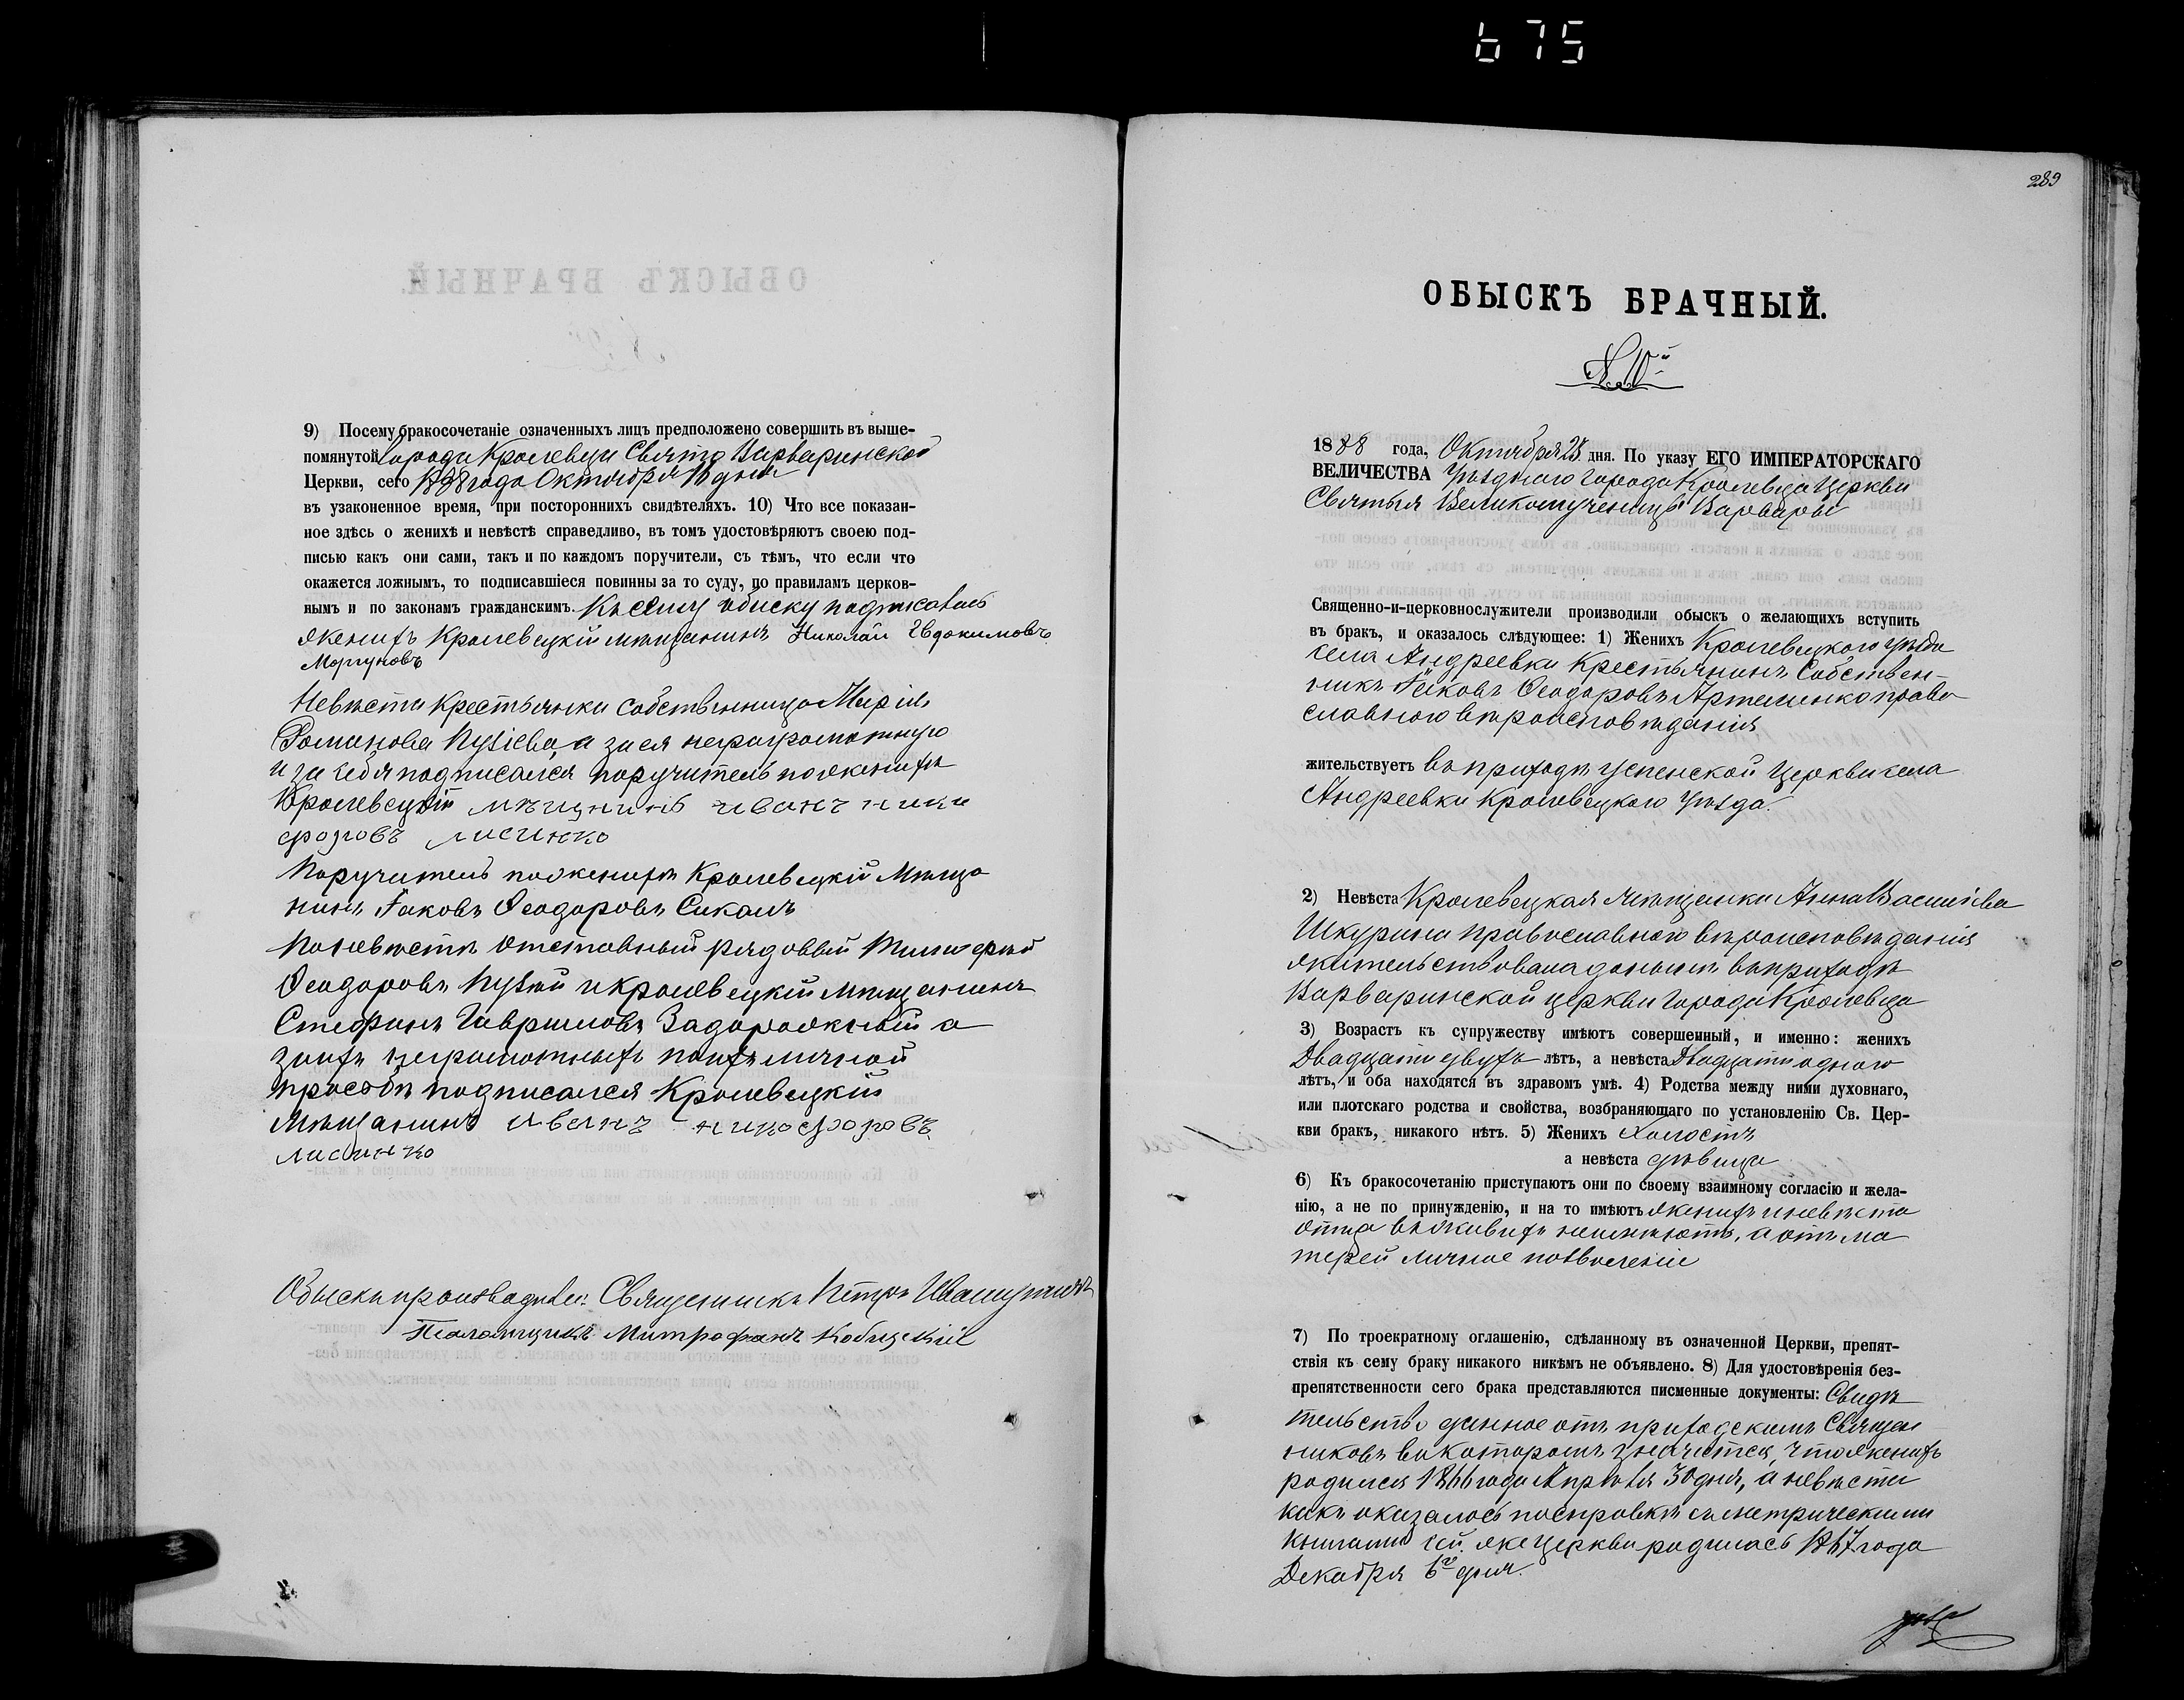 675
9) Посему бракосочетаніе означенныхъ лицъ предположено совершить въ выше-
помянутой города Кролевца Свято Варваринской
Церкви, сего 1888 года Октября 18 дня
въ узаконенное время, при постороннихъ свидѣтеляхъ. 10) Что все показан-
ное здѣсь о женихѣ и невѣстѣ справедливо, въ томъ удостовѣряютъ своею под-
писью какъ они сами, такъ и по каждомъ поручители, съ тѣмъ, что если что
окажется ложнымъ, то подписавшіеся повинны за то суду, по правиламъ церков-
нымъ и по законамъ гражданскимъ. Къ сему обыску подписались
женихъ Кролевецкій мѣщанинъ Николай Евдокимовъ
Моргуновъ
Невѣста Крестьянка собственница Марія
Романова Пузіева, а за ея неграмотную
и за себя подписался поручитель по женихѣ
Кролевецкій мѣщининъ иванъ ники
форовъ лисенко
Поручитель по женихѣ Кролевецкій Мѣща
нинъ Іаковъ Ѳеодоровъ Сикалъ
По невѣстѣ отставный рядовый Тимоѳей
Ѳеодоровъ Пузій и кролевецкій мѣщанинъ
Стефанъ Гавриловъ Задорожный а
за ихъ неграмотныхъ по ихъ личной
просьбѣ подписался Кролевецкій
Мѣщанинъ иванъ никофоровъ
лисинко
Обыскъ производили: Священникъ Петръ
Псаломщикъ Митрофанъ
289
ОБЫСКЪ БРАЧНЫЙ.
№ 10й
1888 года, Октября 23 дня. По указу ЕГО ИМПЕРАТОРСКАГО
ВЕЛИЧЕСТВА Уѣзднаго города Кролевца Церкви
Святыя Великомученицы Варвары
Священно-и-церковнослужители производили обыскъ о желающихъ вступить
въ бракъ, и оказалось слѣдующее: 1) Женихъ Кролевецкого уѣзда
села Андреевки Крестьянинъ Собствен-
никъ Іаковъ Ѳеодоровъ Артеменко право
славного вѣроисповѣданія
жительствуетъ въ приходѣ Успенской церкви села
Андреевки Кролевецкого Уѣзда.
2) Невѣста Кролевецкая мѣщанка Анна Василіева
Шкурина православного вѣроисповѣданія
жительствовала донынѣ въ приходѣ
Варваринской церкви города Кролевца
3) Возрастъ къ супружеству имѣютъ совершенный, и именно: женихъ
Двадцати двухъ лѣтъ, а невѣста Двадцати одного
лѣтъ, и оба находятся въ здравомъ умѣ. 4) Родства между ними духовнаго,
или плотскаго родства и свойства, возбраняющаго по установленію Св. Цер-
кви бракъ, никакого нѣтъ. 5) Женихъ Холостъ
а невѣста дѣвица
6) Къ бракосочетанію приступаютъ они по своему взаимному согласію и жела-
нію, а не по принужденію, и на то имѣютъ женихъ и невѣста
отца въ живыхъ неимѣютъ, а отъ ма
терей личное позволеніе
7) По троекратному оглашенію, сдѣланному въ означенной Церкви, препят-
ствія къ сему браку никакого никѣмъ не объявлено. 8) Для удостовѣренія без-
препятственности сего брака представляются писменные документы: Свидѣ
тельство данное отъ приходскимъ Священ
никовъ въ которомъ значится, что женихъ
родился 1866 года Апрѣля 30 дня, а невѣста
какъ оказалось по справкѣ съ метрическими
книгами сей же церкви родилась 1867 года
Декабря 6го дня.